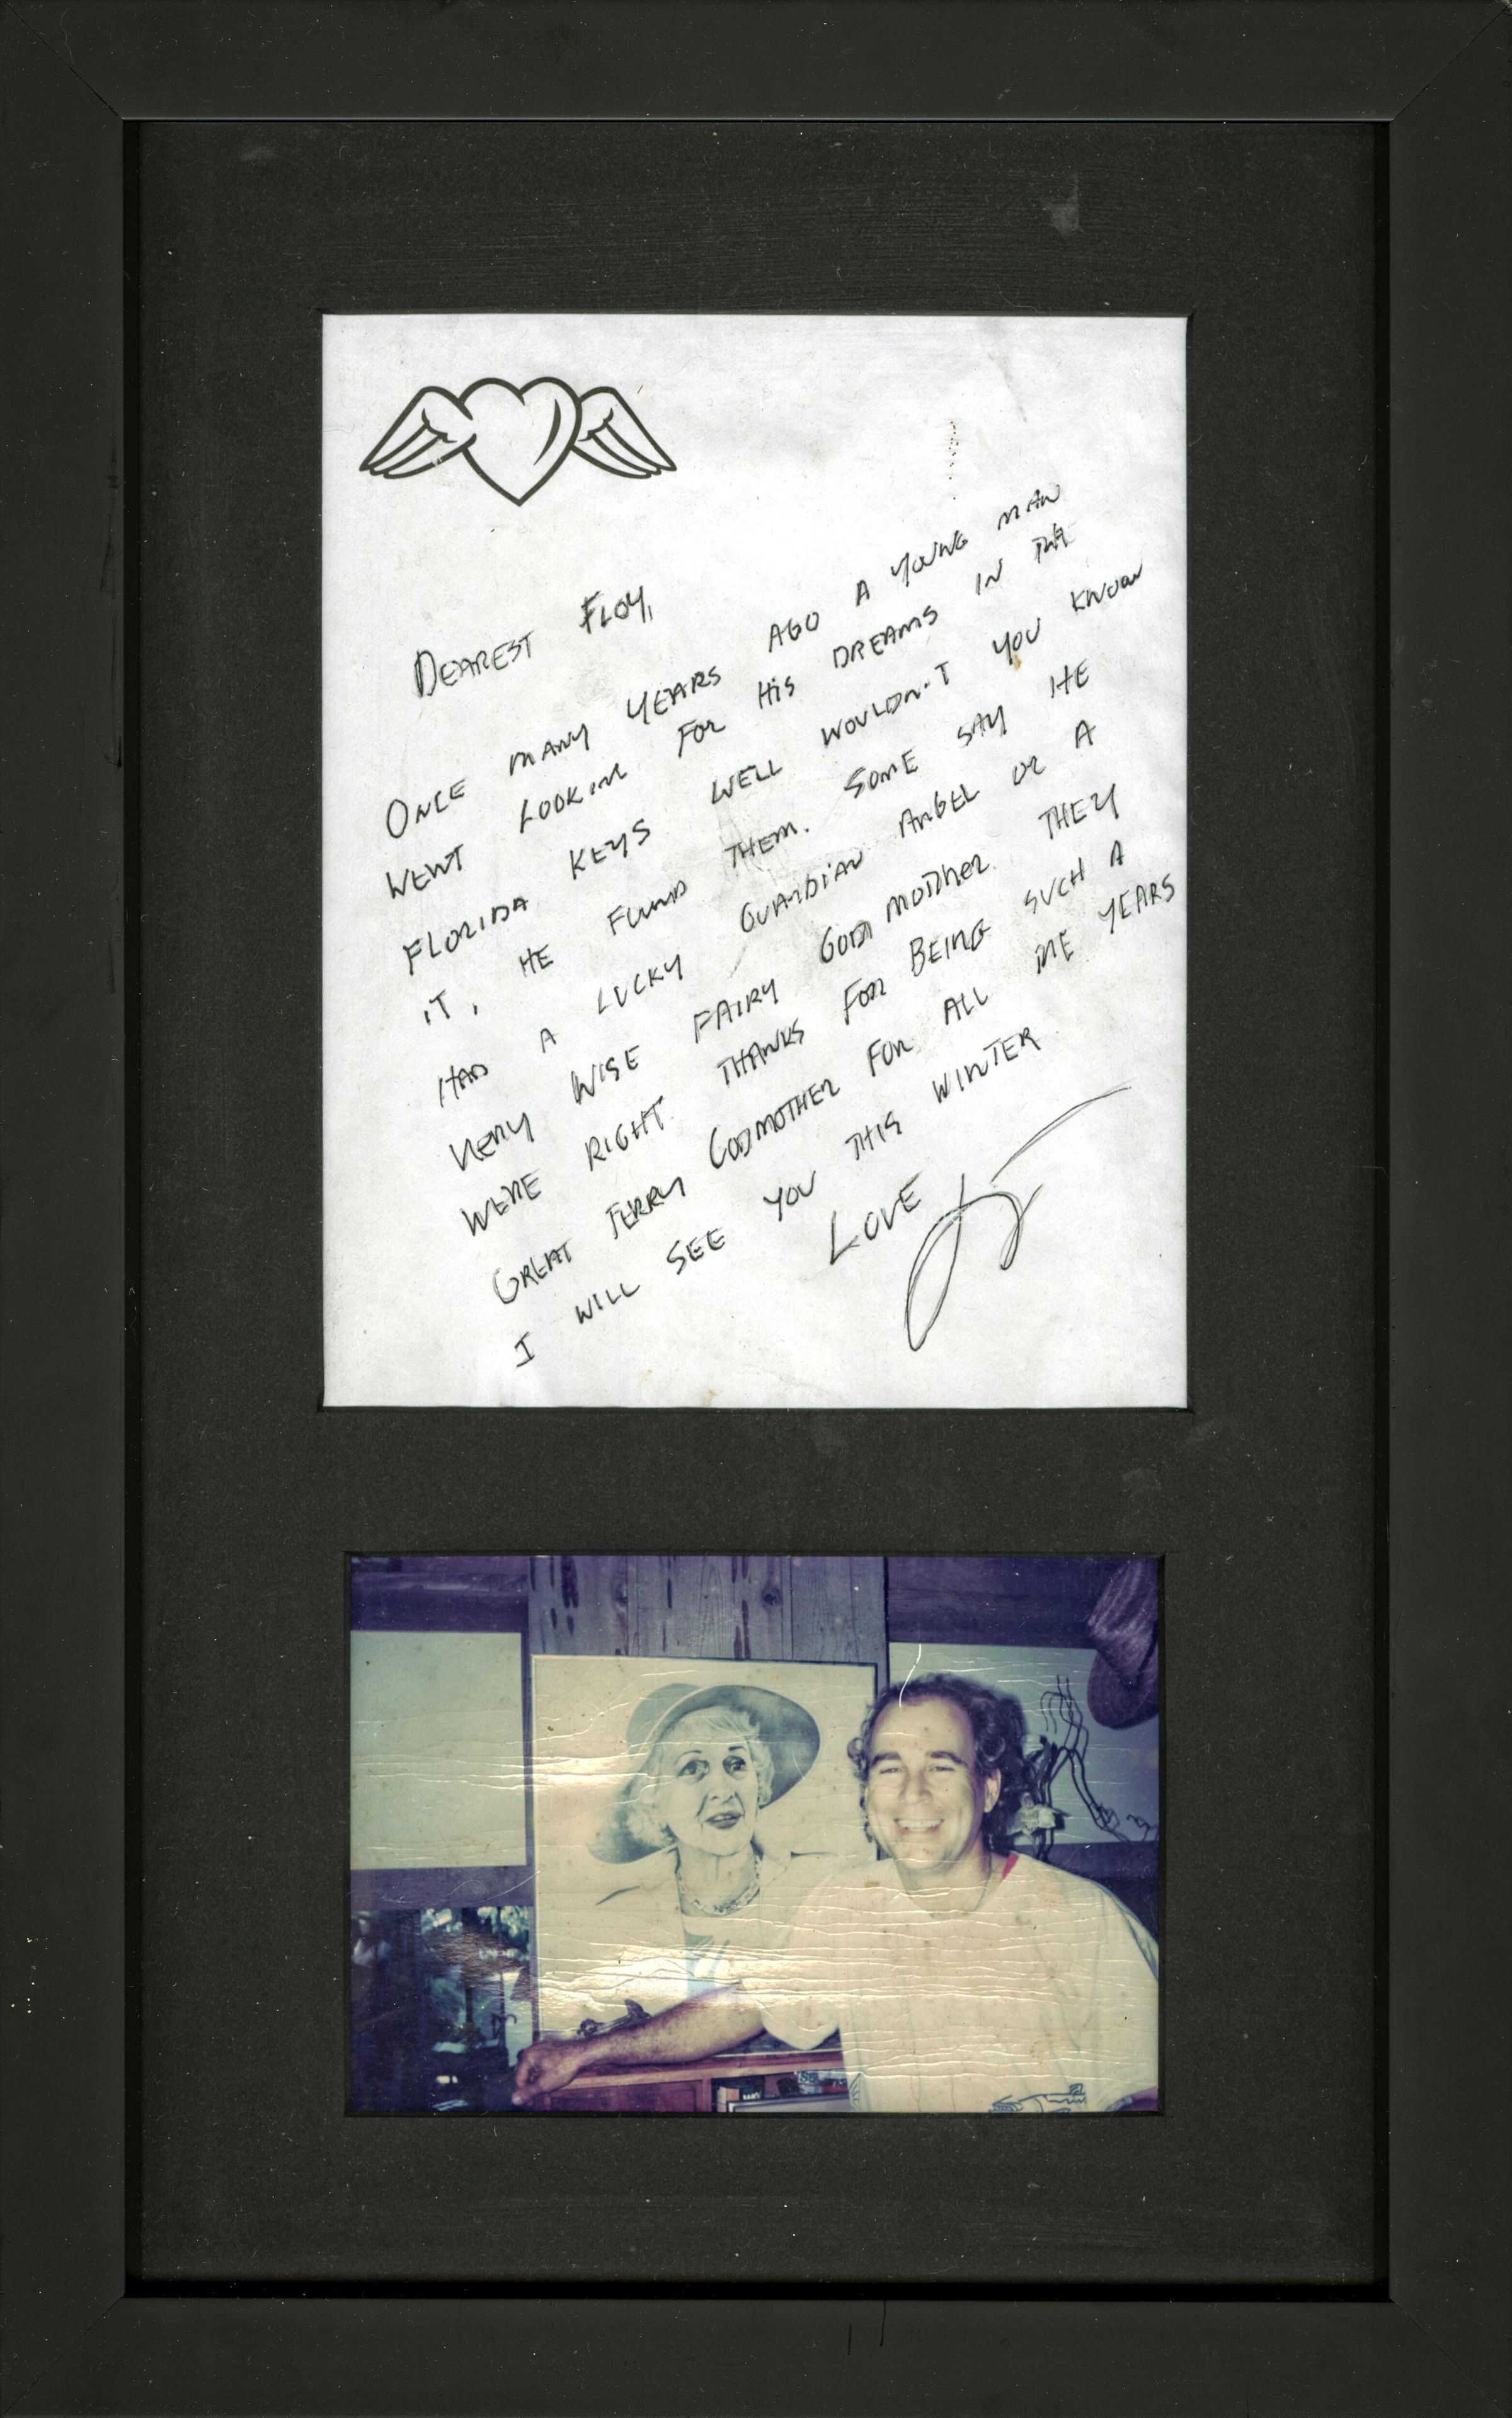 DEAREST FLOY,
ONCE MANY YEARS AGO A YOUNG MAN
WENT LOOKIN FOR HIS DREAMS IN THA
FLORIDA KEYS WELL WOULDN'T YOU KNOW
IT, HE FOUND THEM. SOME SAY HE
HAD A LUCKY GUARDIAN ANGEL OR A
VERY WISE FAIRY GOD MOTHER. THEY
WERE RIGHT. THANKS FOR BEING SUCH A
GREAT FERRY GODMOTHER FOR ALL THE YEARS
I WILL SEE YOU THIS WINTER
LOVE